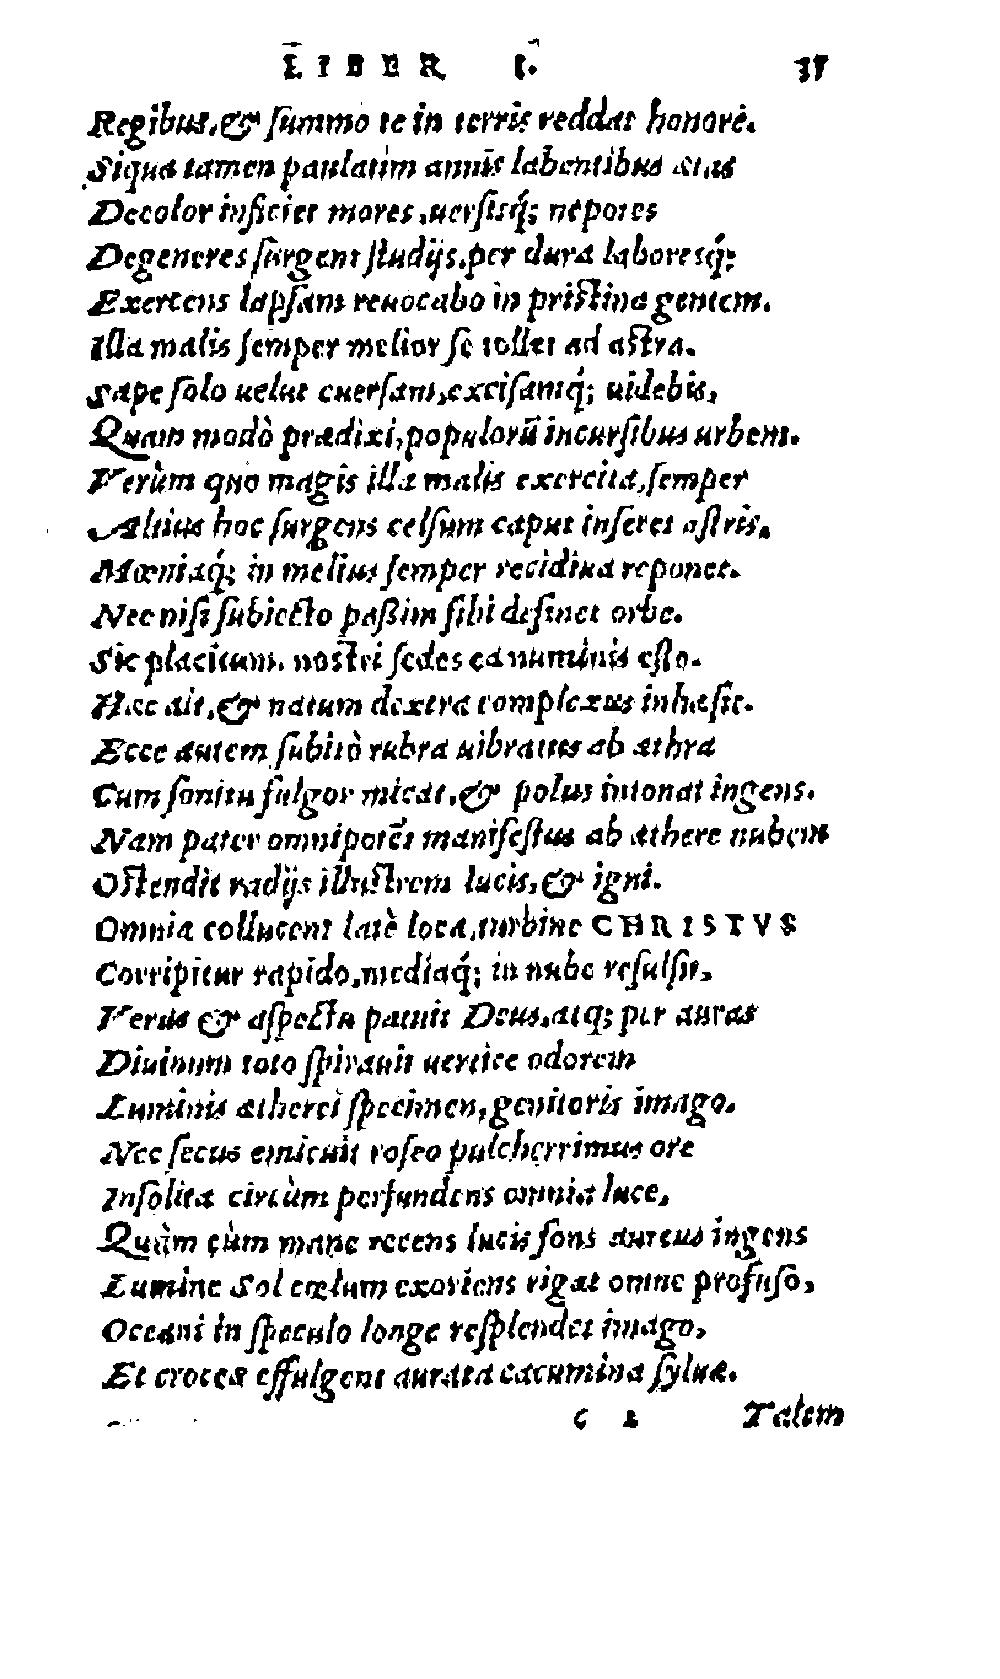 LIBER I. 35
Regibus, & ſummo te in terris reddat honorē.
Siqua tamen paulatim annis labentibus ætas
Decolor inficiet mores, uerſisq́; nepotes
Degeneres ſurgent ſtudijs, per dura laboresq́;
Exercens lapſam reuocabo in priſtina gentem.
Illa malis ſemper melior ſe tollet ad aſtra.
Sæpe ſolo uelut euerſam, exciſamq́; uidebis,
Quam modò prædixi, populorū incurſibus urbem.
Verùm quo magis illa malis exercita, ſemper
Altius hoc ſurgens celſum caput inſeret aſtris.
Mœniaq́; in melius ſemper recidiua reponet.
Nec niſi ſubiecto paßim ſibi deſinet orbe.
Sic placitum. noſtri ſedes ea numinis eſto.
Hæc ait, & natum dextra complexus inhæſit.
Ecce autem ſubitò rubra uibratus ab æthra
Cum ſonitu fulgor micat, & polus intonat ingens.
Nam pater omnipotēs manifeſtus ab æthere nubem
Oſtendit radijs illuſtrem lucis, & igni.
Omnia collucent latè loca, turbine CHRISTVS
Corripitur rapido, mediaq́; in nube refulſit,
Verus & aſpectu patuit Deus, atq; per auras
Diuinum toto ſpirauit uertice odorem
Luminis ætherei ſpecimen, genitoris imago.
Nec ſecus emicuit roſeo pulcherrimus ore
Inſolita circùm perfundens omnia luce,
Quàm cùm mane recens lucis fons aureus ingens
Lumine Sol cœlum exoriens rigat omne profuſo,
Oceani in ſpeculo longe reſplendet imago,
Et croceæ effulgent aurata cacumina ſyluæ.
C 2 Talem